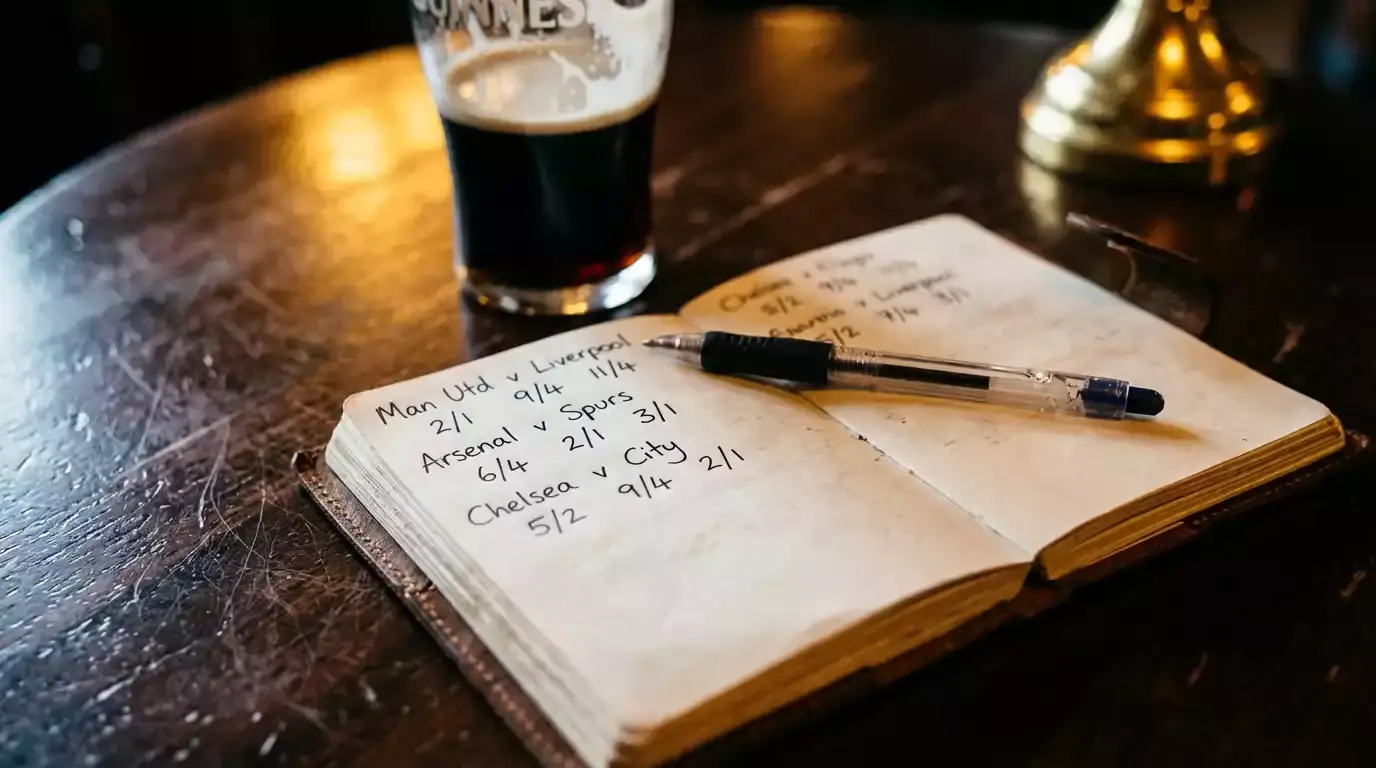 GUINNESS
Man Utd v Liverpool
2/1 9/4 11/4
Arsenal v Spurs
6/4 2/1 3/1
Chelsea v City
5/2 9/4 2/1
Chelsea v
5/2 9/4
v Liverpool
5/2 7/4 3/1